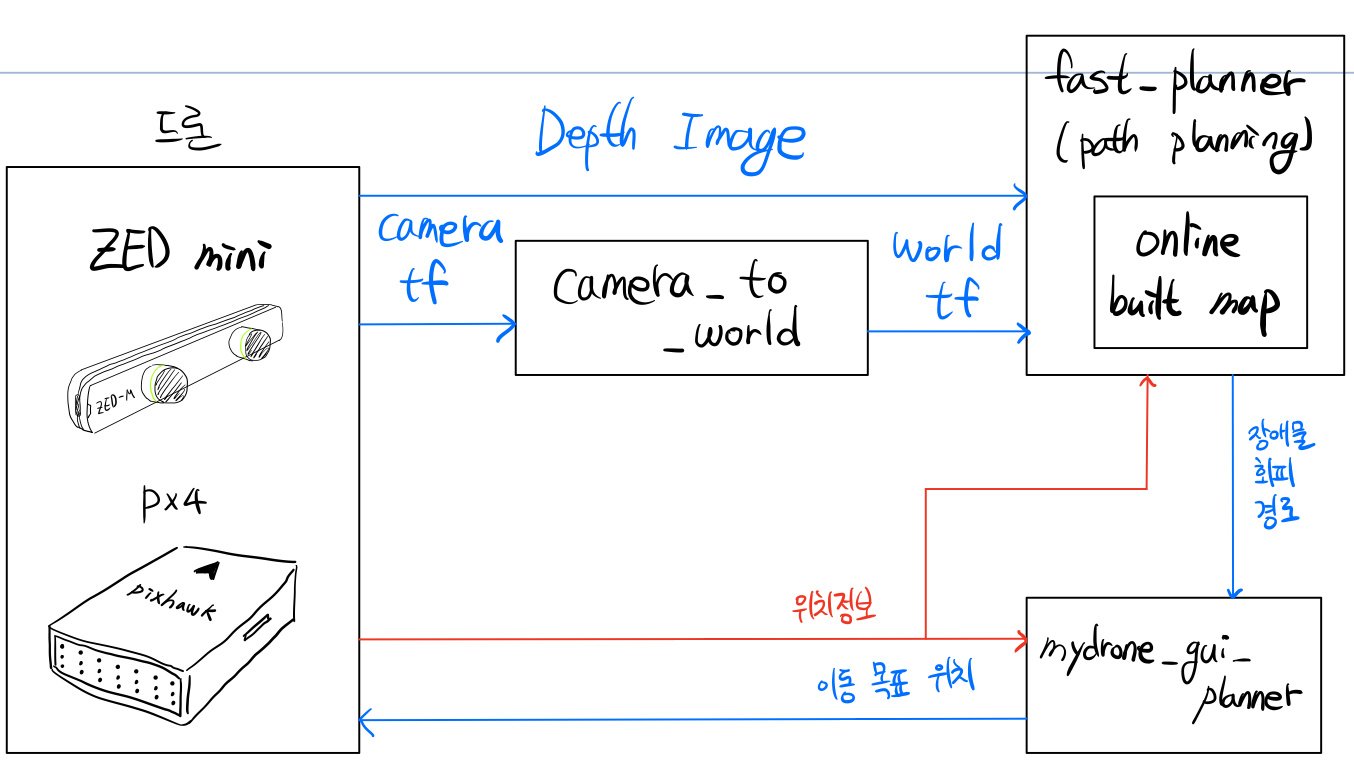 드론
ZED mini
ZED-M
px4
pixhawk
Depth Image
camera
tf
camera_to
_world
world
tf
fast_planner
(path planning)
online
built map
장애물
회피
경로
위치정보
이동 목표 위치
mydrone_gui_
planner